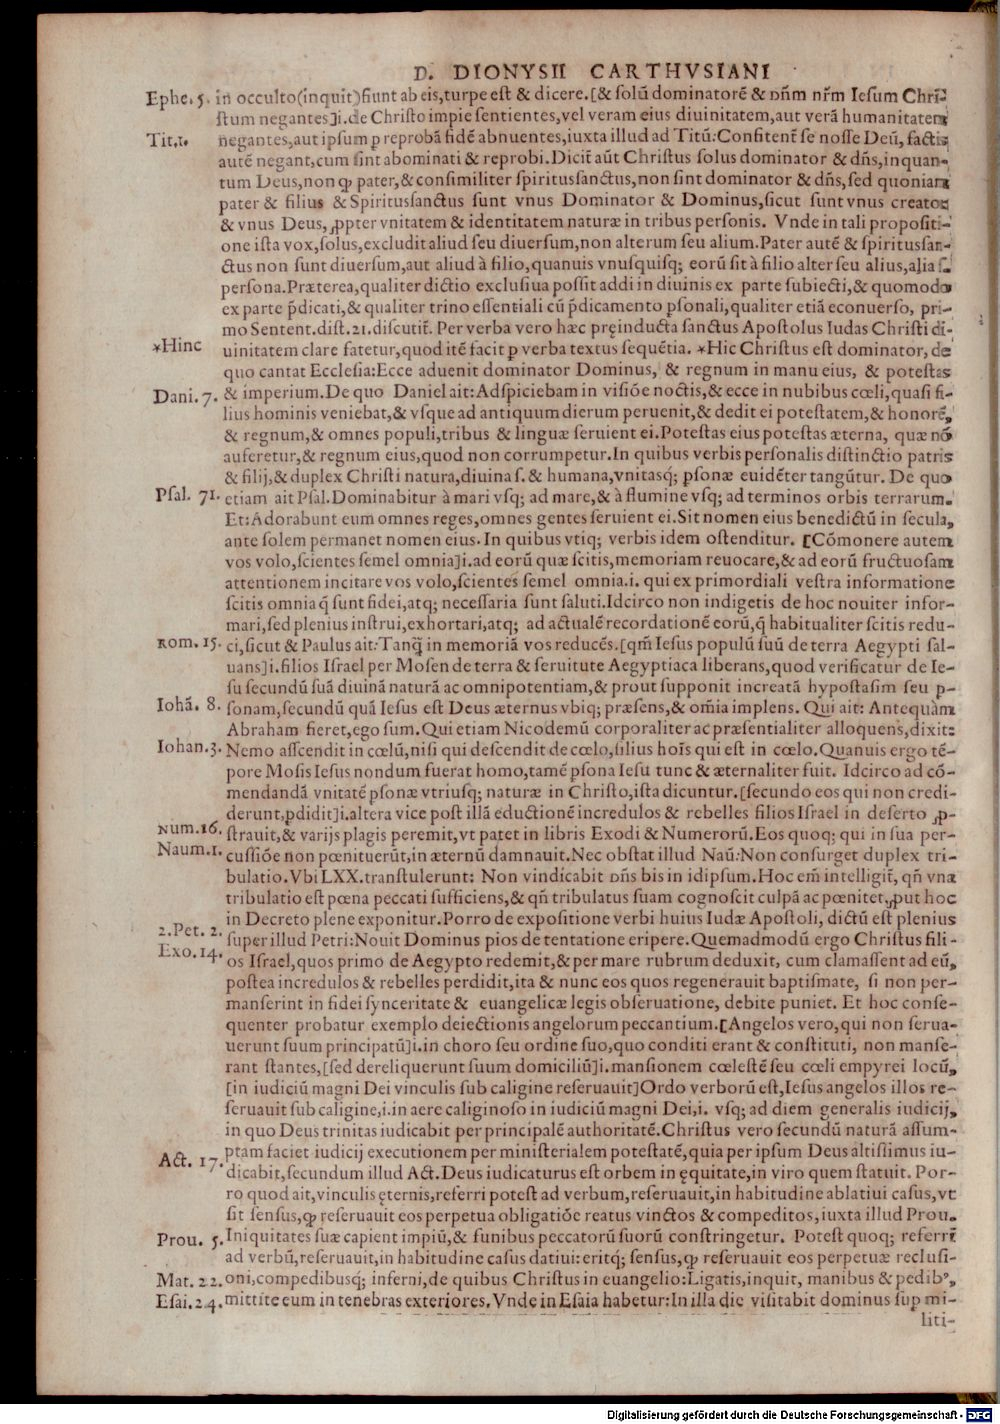 D. DIONYSII CARTHVSIANI
Ephe. 5. in occulto(inquit)fiunt ab eis,turpe est & dicere.[& solū dominatorē & dn̄m nr̄m Iesum Chri-
stum negantes]i.de Christo impie sentientes,vel veram eius diuinitatem,aut verā humanitatem
Tit.1. negantes,aut ipsum ꝑ reprobā fidē abnuentes,iuxta illud ad Titū:Confitent̄ se nosse Deū, factis
autē negant,cum sint abominati & reprobi.Dicit̄ aūt Christus solus dominator & dn̄s,inquan-
tum Deus,non ꝙ pater,& consimiliter spiritussanctus,non sint dominator & dn̄s,sed quoniam
pater & filius & Spiritussanctus sunt vnus Dominator & Dominus,sicut sunt vnus creator
& vnus Deus,ꝓpter vnitatem & identitatem naturæ in tribus personis. Vnde in tali propositi-
one ista vox,solus,excludit aliud seu diuersum,non alterum seu alium.Pater autē & spiritussan-
ctus non sunt diuersum,aut aliud à filio,quanuis vnusquisq; eorū sit à filio alter seu alius,alia s.
persona.Præterea,qualiter dictio exclusiua possit addi in diuinis ex parte subiecti,& quomodo
ex parte p̄dicati,& qualiter trino essentiali cū p̄dicamento ꝑsonali,qualiter etiā econuerso, pri-
mo Sentent.dist.21.discutit̄. Per verba vero hæc pręinducta sanctus Apostolus Iudas Christi di-
*Hinc uinitatem clare fatetur,quod itē facit ꝑ verba textus sequētia. *Hic Christus est dominator, de
quo cantat Ecclesia:Ecce aduenit dominator Dominus, & regnum in manu eius, & potestas
Dani. 7. & imperium.De quo Daniel ait:Adspiciebam in visiōe noctis,& ecce in nubibus cœli,quasi fi-
lius hominis veniebat,& vsque ad antiquum dierum peruenit,& dedit ei potestatem,& honorē,
& regnum,& omnes populi,tribus & linguæ seruient ei.Potestas eius potestas æterna, quæ nō
auferetur,& regnum eius,quod non corrumpetur.In quibus verbis personalis distinctio patris
& filij,& duplex Christi natura,diuina s. & humana,vnitasq; ꝑsonæ euidēter tangūtur. De quo
Psal. 71. etiam ait Psal.Dominabitur à mari vsq; ad mare,& à flumine vsq; ad terminos orbis terrarum.
Et:Adorabunt eum omnes reges,omnes gentes seruient ei.Sit nomen eius benedictū in secula,
ante solem permanet nomen eius.In quibus vtiq; verbis idem ostenditur. [Cōmonere autem
vos volo,scientes semel omnia]i.ad eorū quæ scitis,memoriam reuocare,& ad eorū fructuosam
attentionem incitare vos volo,scientes semel omnia.i. qui ex primordiali vestra informatione
scitis omnia q̄ sunt fidei,atq; necessaria sunt saluti.Idcirco non indigetis de hoc nouiter infor-
mari,sed plenius instrui,exhortari,atq; ad actualē recordationē eorū,q̄ habitualiter scitis redu-
Rom. 15. ci,sicut & Paulus ait:Tanq̄ in memoriā vos reducēs.[qm̄ Iesus populū suū de terra Aegypti sal-
uans]i.filios Israel per Mosen de terra & seruitute Aegyptiaca liberans,quod verificatur de Ie-
su secundū suā diuinā naturā ac omnipotentiam,& prout supponit increatā hypostasim seu p-
Iohā. 8. sonam,secundū quā Iesus est Deus æternus vbiq; præsens,& om̄ia implens. Qui ait: Antequàm
Abraham fieret,ego sum.Qui etiam Nicodemū corporaliter ac præsentialiter alloquens,dixit:
Iohan.3. Nemo asscendit in cœlū,nisi qui descendit de cœlo,filius hois̄ qui est in cœlo.Quanuis ergo tē-
pore Mosis Iesus nondum fuerat homo,tamē ꝑsona Iesu tunc & æternaliter fuit. Idcirco ad cō-
mendandā vnitatē ꝑsonæ vtriusq; naturæ in Christo,ista dicuntur.[secundo eos qui non credi-
derunt,ꝑdidit]i.altera vice post illā eductionē incredulos & rebelles filios Israel in deserto ꝓ-
Num.16. strauit,& varijs plagis peremit,vt patet in libris Exodi & Numerorū.Eos quoq; qui in sua per-
Naum.1. cussiōe non pœnituerūt,in æternū damnauit.Nec obstat illud Naū:Non consurget duplex tri-
bulatio.Vbi LXX.transtulerunt: Non vindicabit dn̄s bis in idipsum.Hoc em̄ intelligit̄, qn̄ vna
tribulatio est pœna peccati sufficiens,& qn̄ tribulatus suam cognoscit culpā ac pœnitet,ꝓut hoc
in Decreto plene exponitur.Porro de expositione verbi huius Iudæ Apostoli, dictū est plenius
2.Pet. 2. super illud Petri:Nouit Dominus pios de tentatione eripere.Quemadmodū ergo Christus fili-
Exo.14. os Israel,quos primo de Aegypto redemit,& per mare rubrum deduxit, cum clamassent ad eū,
postea incredulos & rebelles perdidit,ita & nunc eos quos regenerauit baptismate, si non per-
manserint in fidei synceritate & euangelicæ legis obseruatione, debite puniet. Et hoc conse-
quenter probatur exemplo deiectionis angelorum peccantium.[Angelos vero,qui non serua-
uerunt suum principatū]i.in choro seu ordine suo,quo conditi erant & constituti, non manse-
rant stantes,[sed dereliquerunt suum domiciliū]i.mansionem cœlestē seu cœli empyrei locū,
[in iudiciū magni Dei vinculis sub caligine reseruauit]Ordo verborū est,Iesus angelos illos re-
seruauit sub caligine,i.in aere caliginoso in iudiciū magni Dei,i. vsq; ad diem generalis iudicij,
in quo Deus trinitas iudicabit per principalē authoritatē.Christus vero secundū naturā assum-
ptam faciet iudicij executionem per ministerialem potestatē,quia per ipsum Deus altissimus iu-
Act. 17. dicabit,secundum illud Act.Deus iudicaturus est orbem in ęquitate,in viro quem statuit. Por-
ro quod ait,vinculis ęternis,referri potest ad verbum,reseruauit,in habitudine ablatiui casus,vt
sit sensus,ꝙ reseruauit eos perpetua obligatiōe reatus vinctos & compeditos,iuxta illud Prou.
Prou. 5. Iniquitates suæ capient impiū,& funibus peccatorū suorū constringetur. Potest quoq; referri
ad verbū,reseruauit,in habitudine casus datiui:eritq; sensus,ꝙ reseruauit eos perpetuæ reclusi-
Mat. 22. oni,compedibusq; inferni,de quibus Christus in euangelio:Ligatis,inquit, manibus & pedibꝰ,
Esai.24. mittite eum in tenebras exteriores.Vnde in Esaia habetur:In illa die visitabit dominus suꝑ mi-
liti-
Digitalisierung gefördert durch die Deutsche Forschungsgemeinschaft - DFG